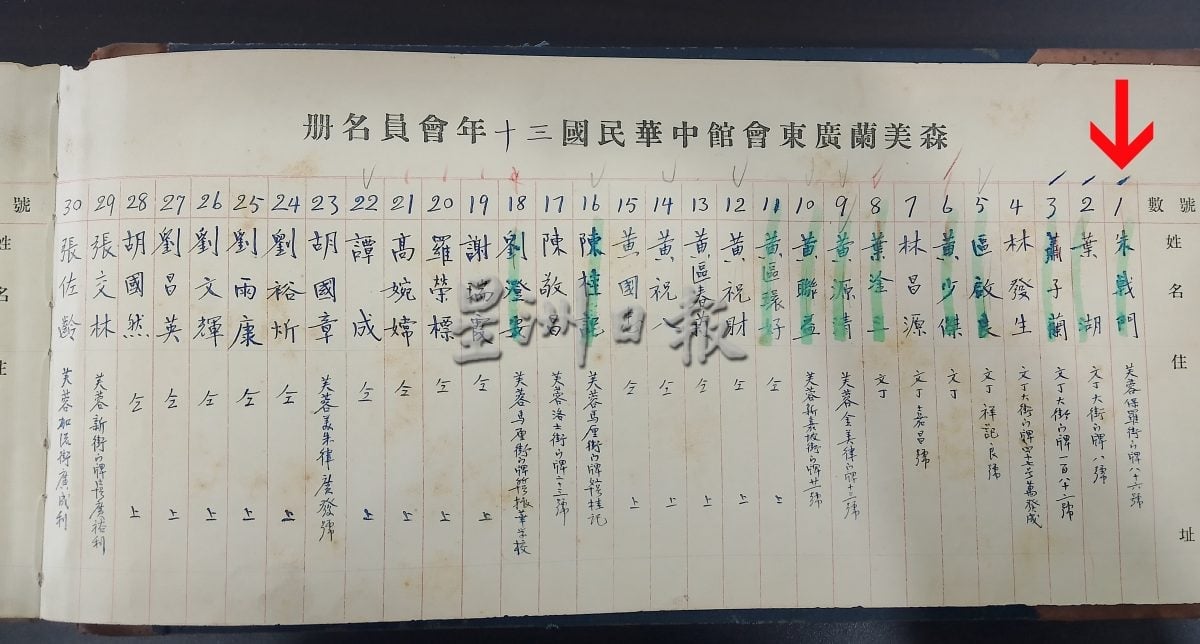 森美蘭廣東會館中華民國三十年會員名册
號數 姓名 住址
1 朱戟門 芙蓉保羅街門牌八十六號
2 葉湖 文丁大街門牌八號
3 蕭子蘭 文丁大街門牌一百八十二號
4 林發生 文丁大街門牌四十七号萬發成
5 區啟良 文丁祥記良號
6 黃少傑 文丁
7 林昌源 文丁嘉昌號
8 葉淦 文丁
9 黃源清 芙蓉金美律門牌十三號
10 黃聯益 芙蓉新嘉坡街門牌廿一號
11 黃區環好 仝上
12 黃祝財 仝上
13 黃區春 仝上
14 黃祝 仝上
15 黃國 仝上
16 陳桂記 芙蓉馬厘街門牌桂記
17 陳敬昌 芙蓉洛士街門牌二十三號
18 劉澄安 芙蓉馬厘街門牌振華学校
19 謝瑞 仝上
20 羅榮標 仝上
21 高婉嫦 仝上
22 譚成 仝上
23 胡國章 芙蓉美朱律廣發號
24 劉裕炘 仝上
25 劉雨康 仝上
26 劉文輝 仝上
27 劉昌英 仝上
28 胡國然 仝上
29 張文林 芙蓉新街門牌廣裕利
30 張佐齡 芙蓉街廣成利
號
姓名
住
星洲日報